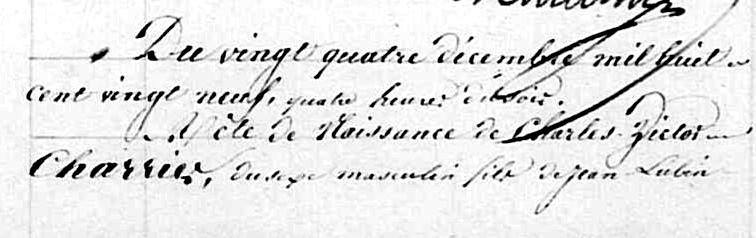 Du vingt quatre décembre mil huit
cent vingt neuf, quatre heures du soir.
Acte de Naissance de Charles Victor
Charrier, du sexe masculin fils de jean Lubin